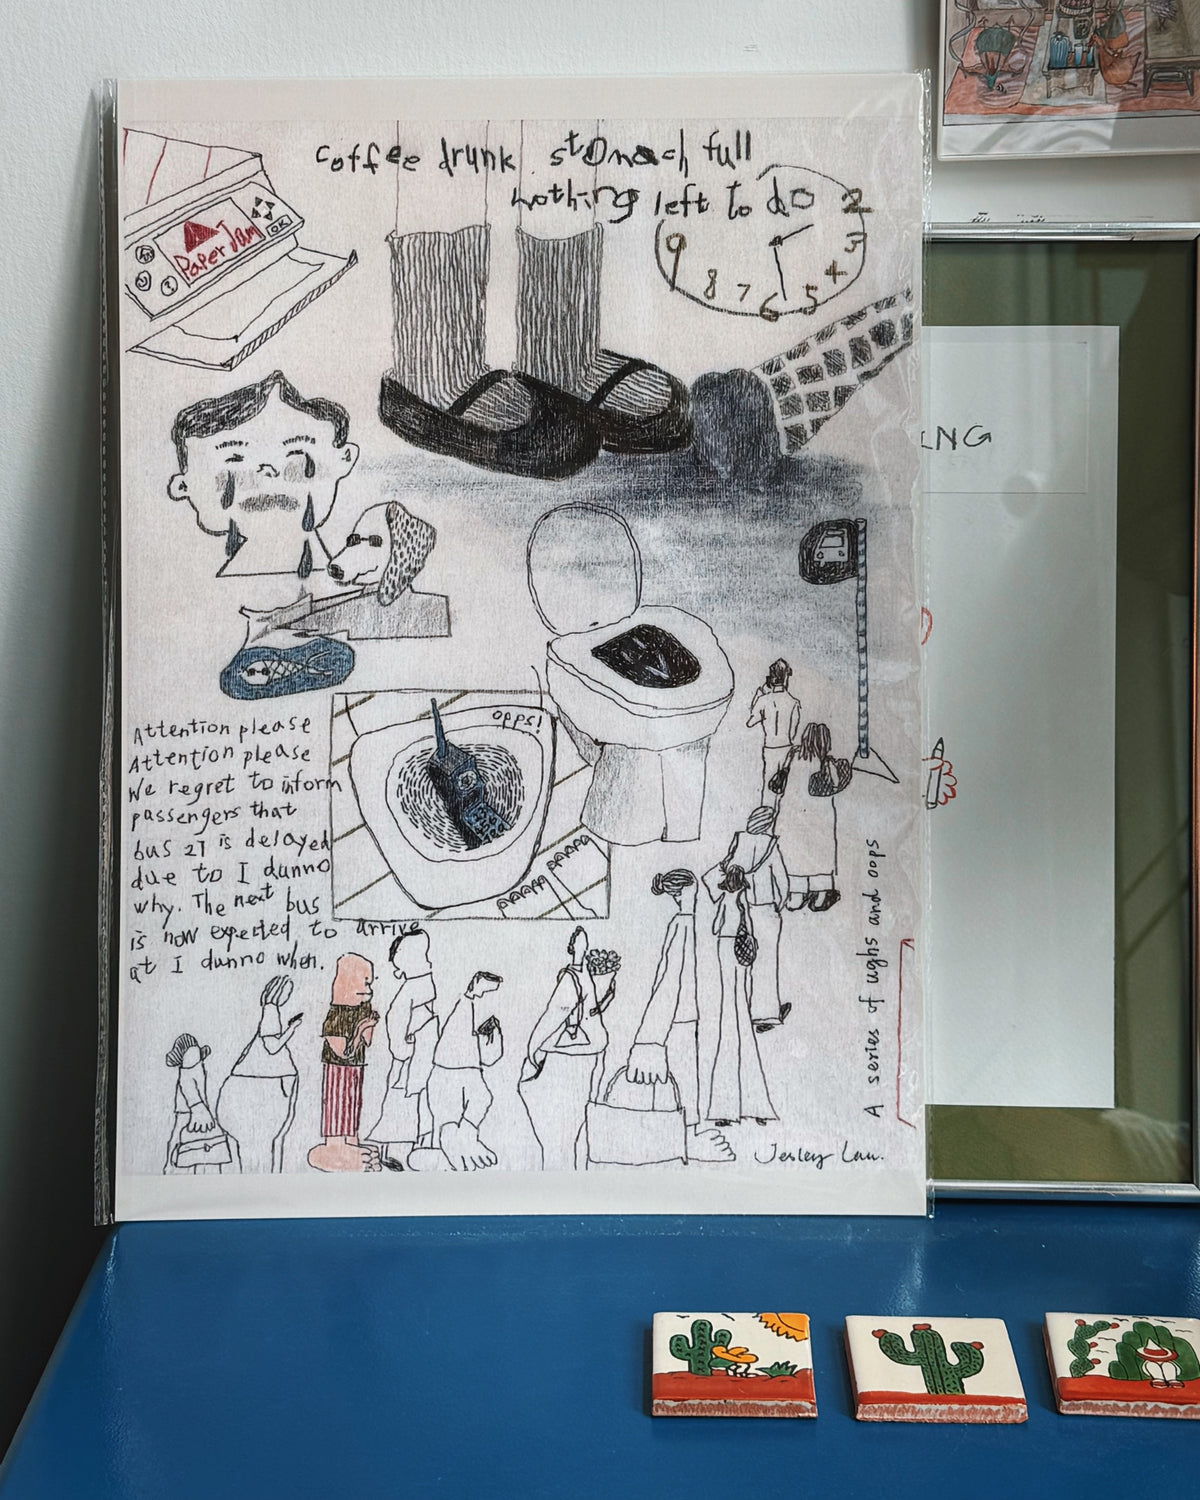 coffee drunk stomach full
nothing left to do
OK
Paper Jam
2
3
4
5
6
7
8
9
opps!
Attention please
Attention please
We regret to inform
passengers that
bus 27 is delayed
due to I dunno
why. The next bus
is now expected to arrive
at I dunno when.
A series of ughs and oops
Jesley Lau.
ING